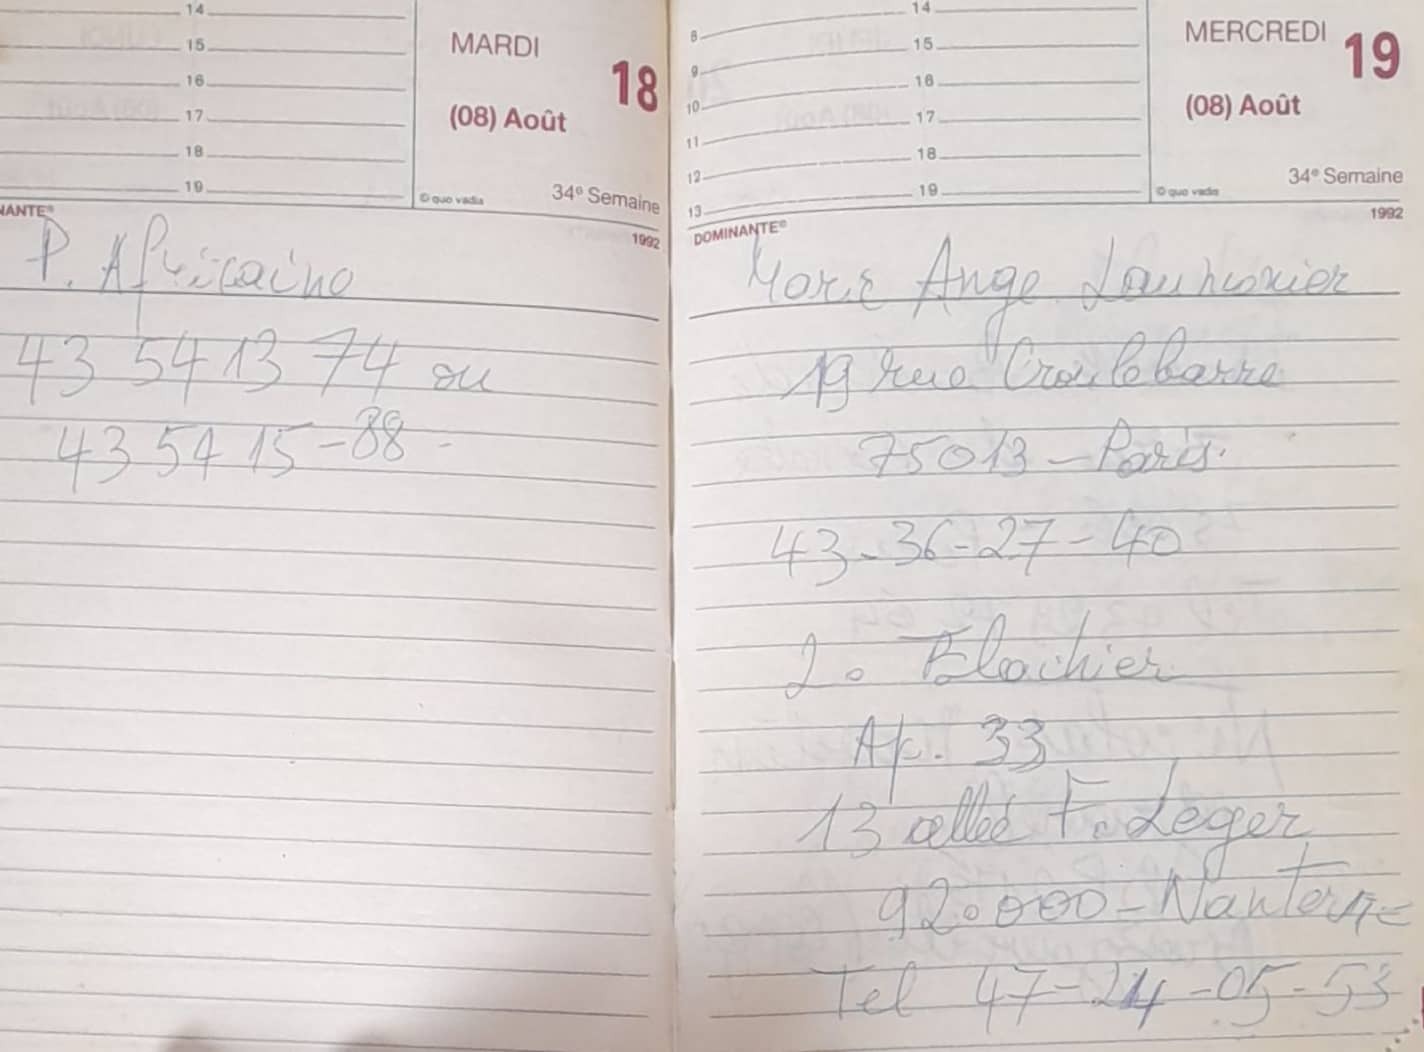 14
15
16
17
18
19
MARDI
18
(08) Août
© quo vadis
34e Semaine
NANTE®
1992
P. Africaine
43 54 13 74 ou
43 54 15-88 -
8
9
10
11
12
13
14
15
16
17
18
19
MERCREDI
19
(08) Août
© quo vadis
34e Semaine
DOMINANTE®
1992
Marie Ange
19 rue Croulebarre
75013 - Paris.
43-36-27-40
J. Blachier
Ap. 33
13 allée F. Leger
92.000 - Nanterre
Tel 47-24-05-53